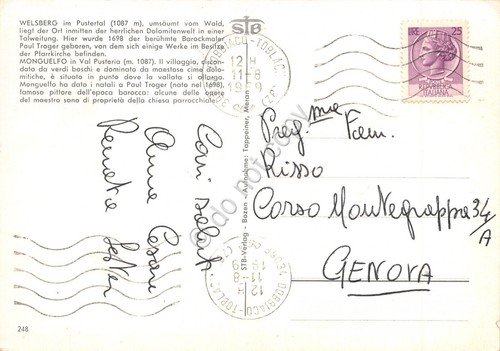 WELSBERG im Pustertal (1087 m), umsäumt vom Wald,
liegt der Ort inmitten der herrlichen Dolomitenwelt in einer
Talweitung. Hier wurde 1698 der berühmte Barockmaler
Paul Troger geboren, von dem sich einige Werke im Besitze
der Pfarrkirche befinden.
MONGUELFO in Val Pusteria (m. 1087). Il villaggio, circon-
dato da verdi boschi e dominato da maestose cime dolo-
mitiche, è situato in punto dove la vallata si allarga.
Monguelfo ha dato i natali a Paul Troger (nato nel 1698),
famoso pittore dell'epoca barocca: alcune delle opere
del maestro sono di proprietà della chiesa parrocchiale.
STB
STB-Verlag - Bozen - Aufnahme: Tappeiner, Meran
LIRE 25
12 H
11-8
Preg.me Fam.
Risso
Corso Montegrappa 34/A
GENOVA
Cari saluti
Anna Cesare
Renata
DOBBIACO-TOBLAC
12 H
11-8
248